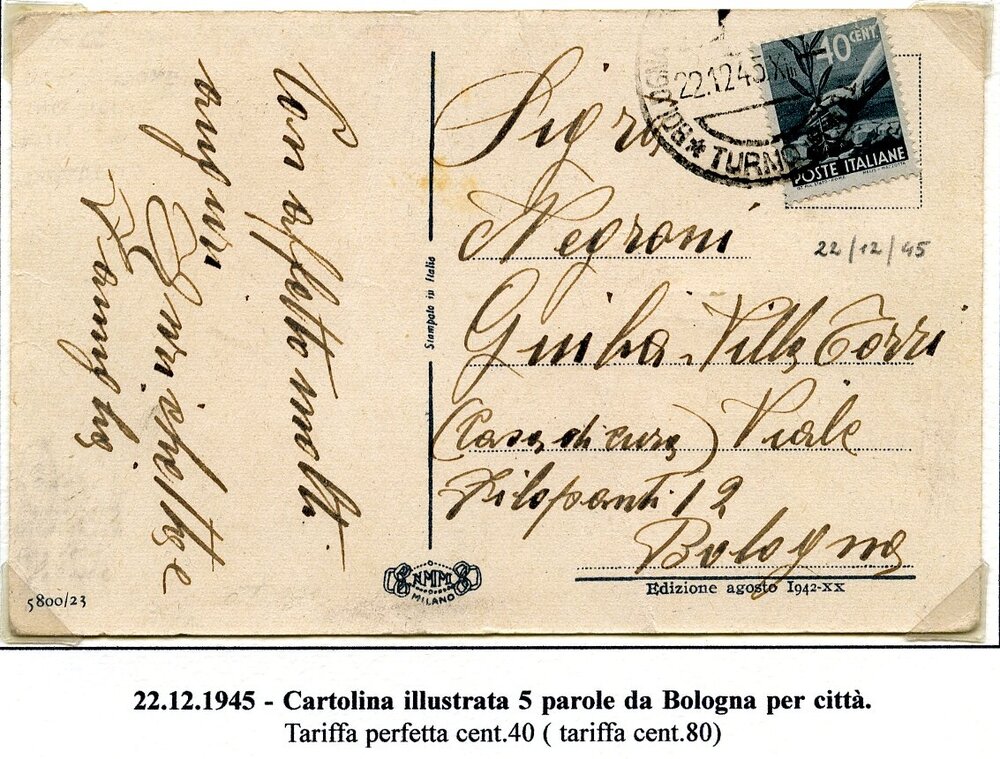 Con affetto molti
auguri
Enrichetta e
Famiglia
Stampato in Italia
NMM
MILANO
5800/23
BOLOGNA
22.12.45
TURNO
40 CENT.
POSTE ITALIANE
22/12/45
Sig.ra
Negroni
Giulia Villa Torri
(Casa di cura) Viale
Filopanti 12
Bologna
Edizione agosto 1942-XX
22.12.1945 - Cartolina illustrata 5 parole da Bologna per città.
Tariffa perfetta cent.40 ( tariffa cent.80)